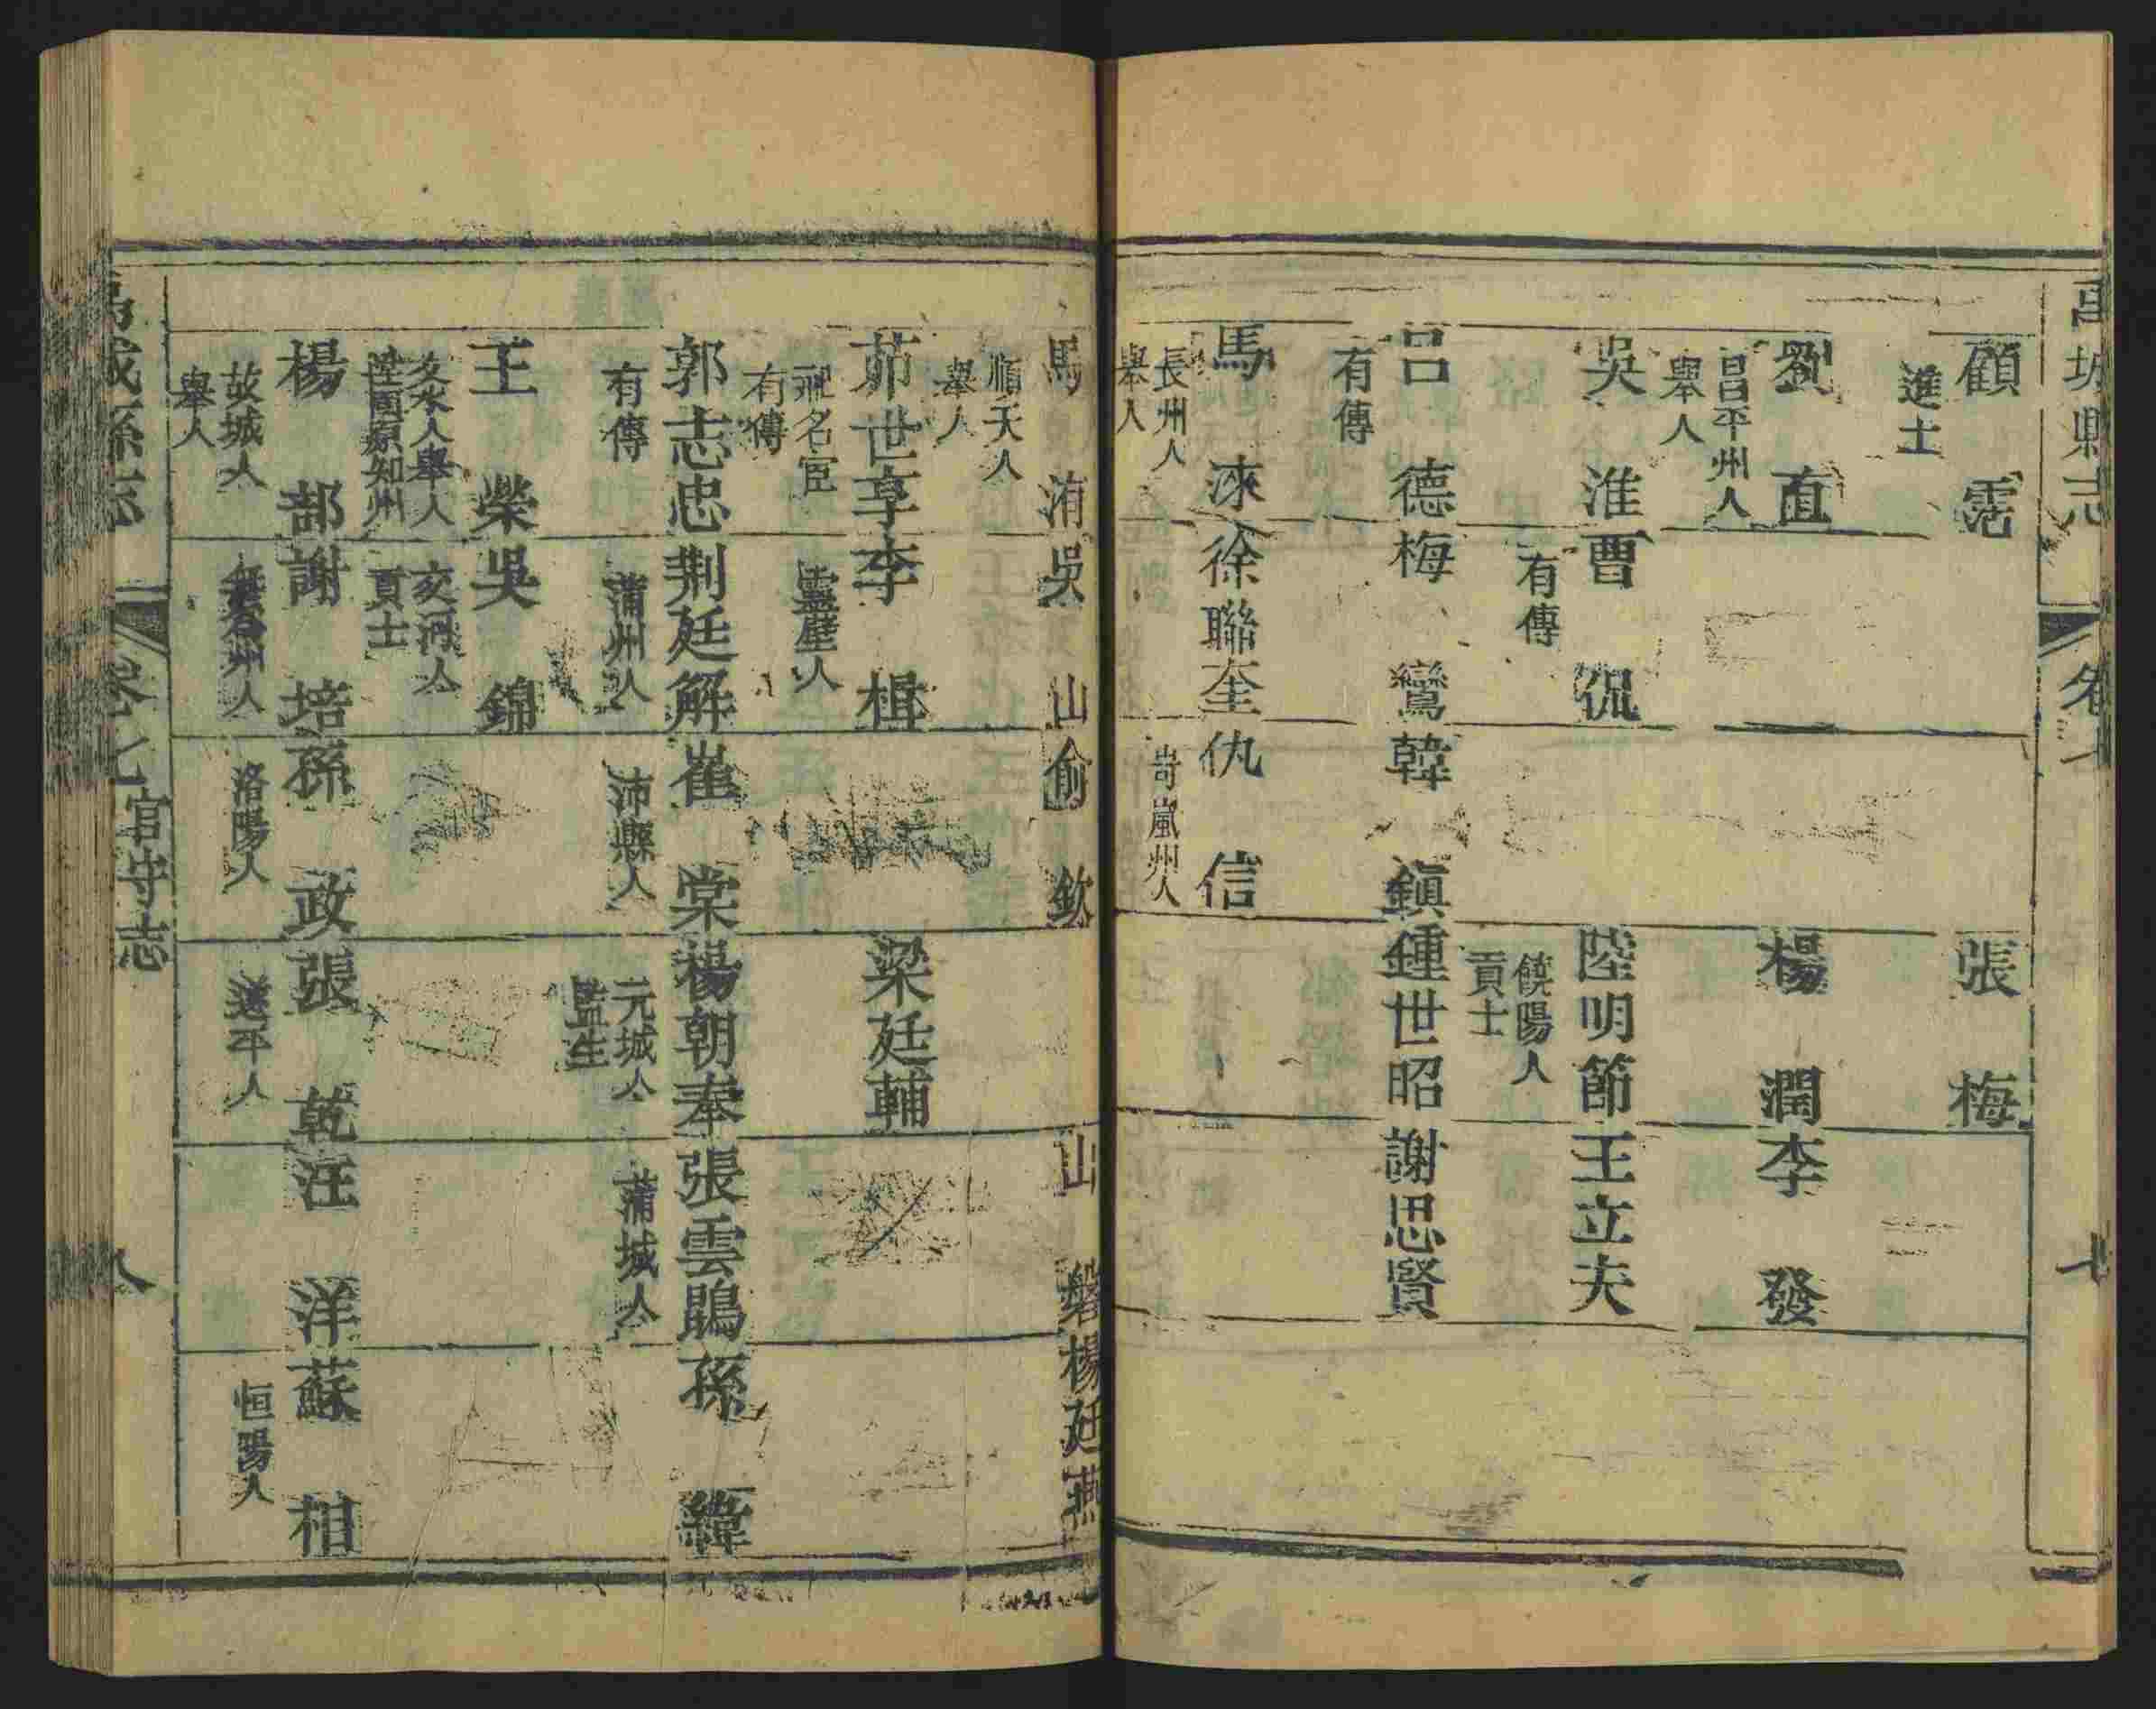 禹城縣志
卷七
七
顧 霑 張 梅
進士
劉 直 楊 潤 李 發
昌平州人
舉人
吳 淮 曹 侃 陸明節 王立夫
有傳
饒陽人
貢士
呂 德 梅 鸞 韓 鎮 鍾世昭 謝思賢
有傳
馬 淶 徐聯奎 仇 信
長州人
舉人
岢嵐州人
馬 洧 吳 山 俞 欽 山 磐 楊廷燕
順天人
舉人
茆世亨 李 楫 梁廷輔
祀名宦
有傳
靈壁人
郭志忠 荆廷解 崔 棠 楊朝奉 張雲鵾 孫 緯
有傳
蒲州人
沛縣人
元城人
監生
蒲城人
王 榮 吳 錦
文水人舉人
陞固原知州
交河人
貢士
楊 部 謝 培 孫 政 張 乾 汪 洋 蘇 相
故城人
舉人
洛陽人
遂平人
恒陽人
禹城縣志
卷七
官守志
八